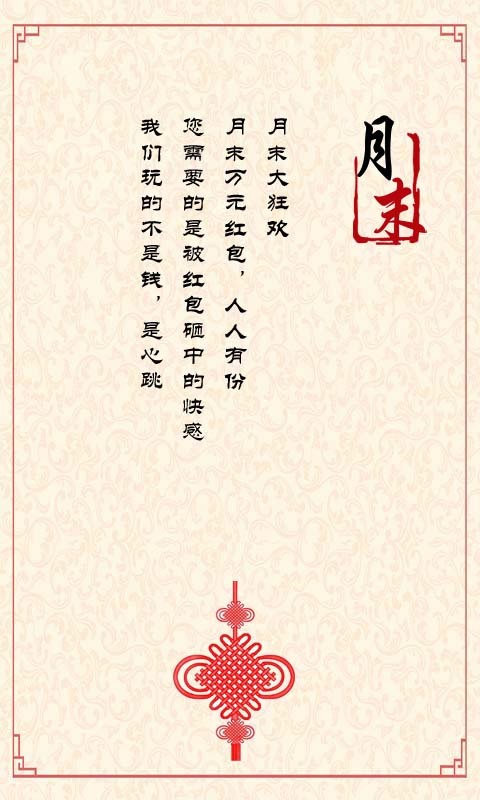 月末
月末大狂欢
月末万元红包，人人有份
您需要的是被红包砸中的快感
我们玩的不是钱，是心跳